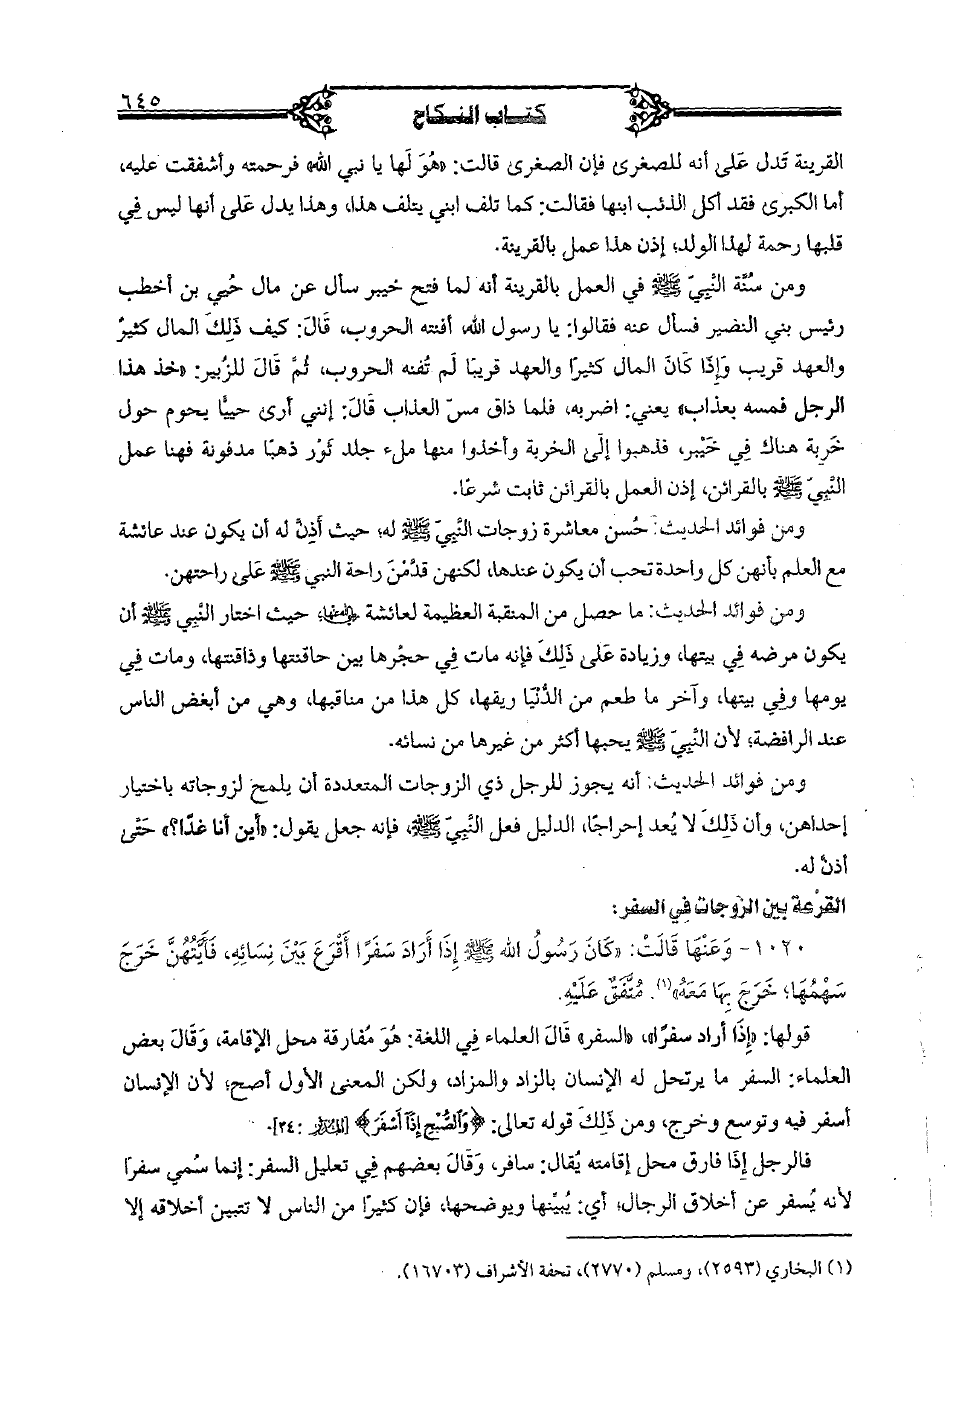 ٦٤٥
كتاب النكاح
القرينة تَدل عَلى أنه للصغرى فإن الصغرى قالت: «هُوَ لَها يا نبي الله» فرحمته وأشفقت عليه،
أما الكبرى فقد أكل الذئب ابنها فقالت: كما تلف ابني يتلف هذا، وهذا يدل عَلى أنها ليس فِي
قلبها رحمة لهذا الولد؛ إذن هذا عمل بالقرينة.
ومن سُنَّة النَّبِيّ ﷺ في العمل بالقرينة أنه لما فتح خيبر سأل عن مال حُيي بن أخطب
رئيس بني النضير فسأل عنه فقالوا: يا رسول الله، أفنته الحروب، قَالَ: كيف ذَلِكَ المال كثيرٌ
والعهد قريب وَإِذَا كَانَ المال كثيرًا والعهد قريبًا لَم تُفنه الحروب، ثُمَّ قَالَ للزُبير: «خذ هذا
الرجل فمسه بعذاب» يعني: اضربه، فلما ذاق مسّ العذاب قَالَ: إنني أرى حييًّا يحوم حول
خَرِبة هناك فِي خَيْبر، فذهبوا إلَى الخربة وأخذوا منها ملء جلد ثَوْر ذهبًا مدفونة فهنا عمل
النَّبِيّ ﷺ بالقرائن، إذن العمل بالقرائن ثابت شرعًا.
ومن فوائد الحديث: حُسن معاشرة زوجات النَّبِيّ ﷺ له؛ حيث أَذِنَّ له أن يكون عند عائشة
مع العلم بأنهن كل واحدة تحب أن يكون عندها، لكنهن قدَّمْنَ راحة النبي ﷺ عَلى راحتهن.
ومن فوائد الحديث: ما حصل من المنقبة العظيمة لعائشة رضي الله عنها؛ حيث اختار النَّبِي ﷺ أن
يكون مرضه فِي بيتها، وزيادة عَلى ذَلِكَ فإنه مات فِي حجْرها بين حاقنتها وذاقنتها، ومات فِي
يومها وفِي بيتها، وآخر ما طعم من الدُّنْيَا ريقها، كل هذا من مناقبها، وهي من أبغض الناس
عند الرافضة؛ لأن النَّبِيّ ﷺ يحبها أكثر من غيرها من نسائه.
ومن فوائد الحديث: أنه يجوز للرجل ذي الزوجات المتعددة أن يلمح لزوجاته باختيار
إحداهن، وأن ذَلِكَ لا يُعد إحراجًا، الدليل فعل النَّبِيّ ﷺ، فإنه جعل يقول: «أين أنا غدًا؟» حَتَّى
أذنَّ له.
القرْعة بين الزوجات فِي السفر:
١٠٢٠- وَعَنْهَا قَالَتْ: «كَانَ رَسُولُ الله ﷺ إِذَا أَرَادَ سَفَرًا أَقْرَعَ بَيْنَ نِسَائِهِ، فَأَيَّتُهُنَّ خَرَجَ
سَهْمُهَا؛ خَرَجَ بِهَا مَعَهُ»(١). مُتَّفَقٌ عَلَيْهِ.
قولها: «إِذَا أراد سفرًا»، «السفر» قَالَ العلماء فِي اللغة: هُوَ مُفارقة محل الإقامة، وَقَالَ بعض
العلماء: السفر ما يرتحل له الإنسان بالزاد والمزاد، ولكن المعنى الأول أصح؛ لأن الإنسان
أسفر فيه وتوسع وخرج، ومن ذَلِكَ قوله تعالى: ﴿وَٱلصُّبْحِ إِذَآ أَسْفَرَ﴾ [المدثر: ٣٤].
فالرجل إِذَا فارق محل إقامته يُقال: سافر، وَقَالَ بعضهم فِي تعليل السفر: إنما سُمي سفرًا
لأنه يُسفر عن أخلاق الرجال؛ أي: يُبيِّنها ويوضحها، فإن كثيرًا من الناس لا تتبين أخلاقه إلا
(١) البخاري (٢٥٩٣)، ومسلم (٢٧٧٠)، تحفة الأشراف (١٦٧٠٣).